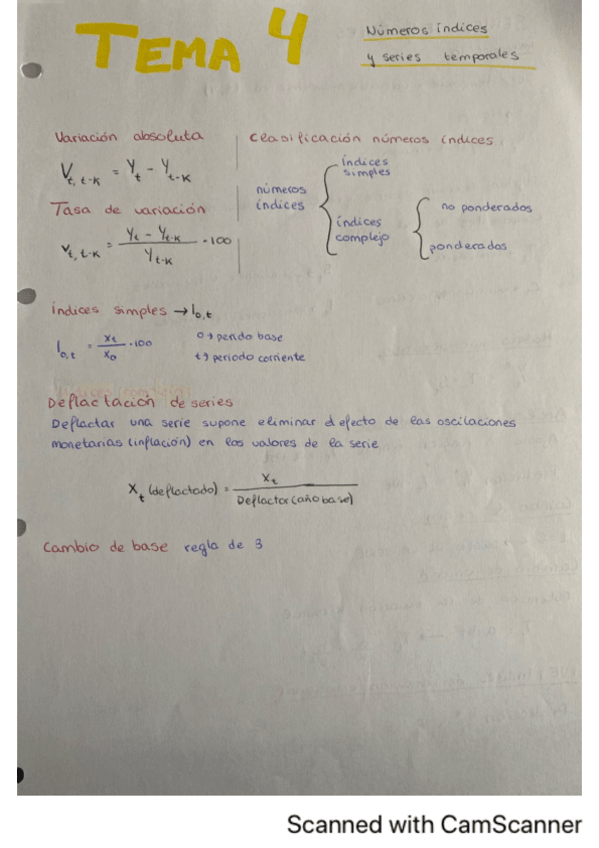 TEMA 4
Números índices
y series temporales
Variación absoluta
V t, t-K = Y t - Y t-K
Tasa de variación
v t, t-K = (Y t - Y t-K) / Y t-K · 100
Clasificación números índices
números índices
índices simples
índices complejo
no ponderados
ponderados
índices simples → I o,t
I o,t = x t / x o · 100
0 → periodo base
t → periodo corriente
Deflactación de series
Deflactar una serie supone eliminar el efecto de las oscilaciones
monetarias (inflación) en los valores de la serie
X t (deflactado) = X t / Deflactor (año base)
Cambio de base regla de 3
Scanned with CamScanner